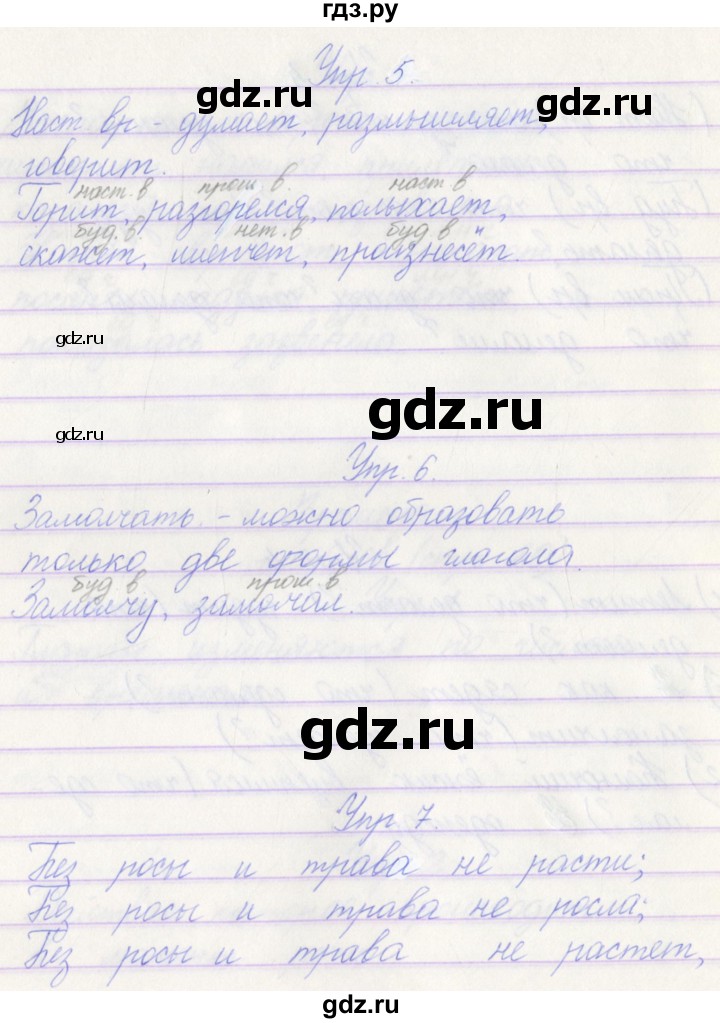 гдз.ру
Упр. 5.
gdz.ru
gdz.ru
Наст вр - думает, размышляет,
говорит.
наст. в прош. в. наст. в
Горит, разгорелся, полыхает,
буд. в. нет. в буд в
скажет, шепчет, произнесёт.
gdz.ru
gdz.ru
gdz.ru
Упр. 6.
Замолчать - можно образовать
только две формы глагола.
буд в прош. в
Замолчу, замолчал.
gdz.ru
Упр 7.
Без росы и трава не расти;
Без росы и трава не росла;
Без росы и трава не растет,
gdz.ru